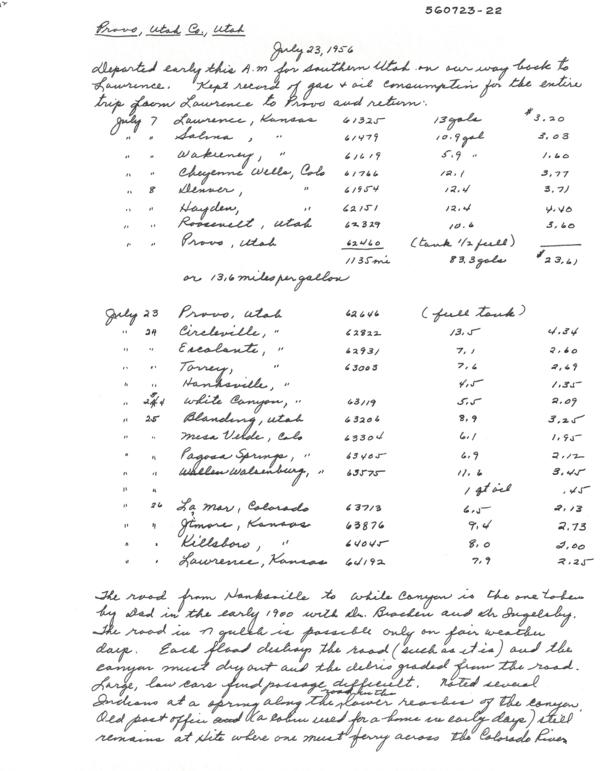 560723-22
Provo, Utah Co., Utah
July 23, 1956
Departed early this A.M for southern Utah on our way back to
Lawrence. Kept record of gas + oil consumption for the entire
trip from Lawrence to Provo and return:
July 7 Lawrence, Kansas 61325 13 gals $3.20
" " Salina, " 61479 10.9 gal 3.03
" " Wakeeney, " 61619 5.9 " 1.60
" " Cheyenne Wells, Colo 61766 12.1 3.77
" 8 Denver, " 61954 12.4 3.71
" " Hayden, " 62151 12.4 4.40
" " Roosevelt, Utah 62329 10.6 3.60
" " Provo, Utah 62460 (tank 1/2 full)
1135 mi 83.3 gals $23.61
or 13.6 miles per gallon
July 23 Provo, Utah 62646 (full tank)
" 24 Circleville, " 62822 13.5 4.34
" " Escalante, " 62931 7.1 2.60
" " Torrey, " 63003 7.6 2.69
" " Hanksville, " 4.5 1.35
" 24 White Canyon, " 63119 5.5 2.09
" 25 Blanding, Utah 63206 8.9 3.25
" " Mesa Verde, Colo 63304 6.1 1.95
" " Pagosa Springs, " 63405 6.9 2.12
" " Walsenburg, " 63575 11.6 3.45
" " 1 qt oil .45
" 26 La Mar, Colorado 63713 6.5 2.13
" " Jtmore, Kansas 63876 9.4 2.73
" " Killsboro, " 64045 8.0 2.00
" " Lawrence, Kansas 64192 7.9 2.25
The road from Hanksville to White Canyon is the one taken
by Dad in the early 1900 with Dr. and Dr Ingelsby.
The road in gulch is possible only on fair weather
days. Each flood destroys the road (such as it is) and the
canyon must dry out and the debris graded from the road.
Large, low cars find passage difficult. Noted several
Indians at a spring along the road in the lower reaches of the canyon.
Old post office and (a cabin used for a home in early days) still
remains at Hite where one must ferry across the Colorado River